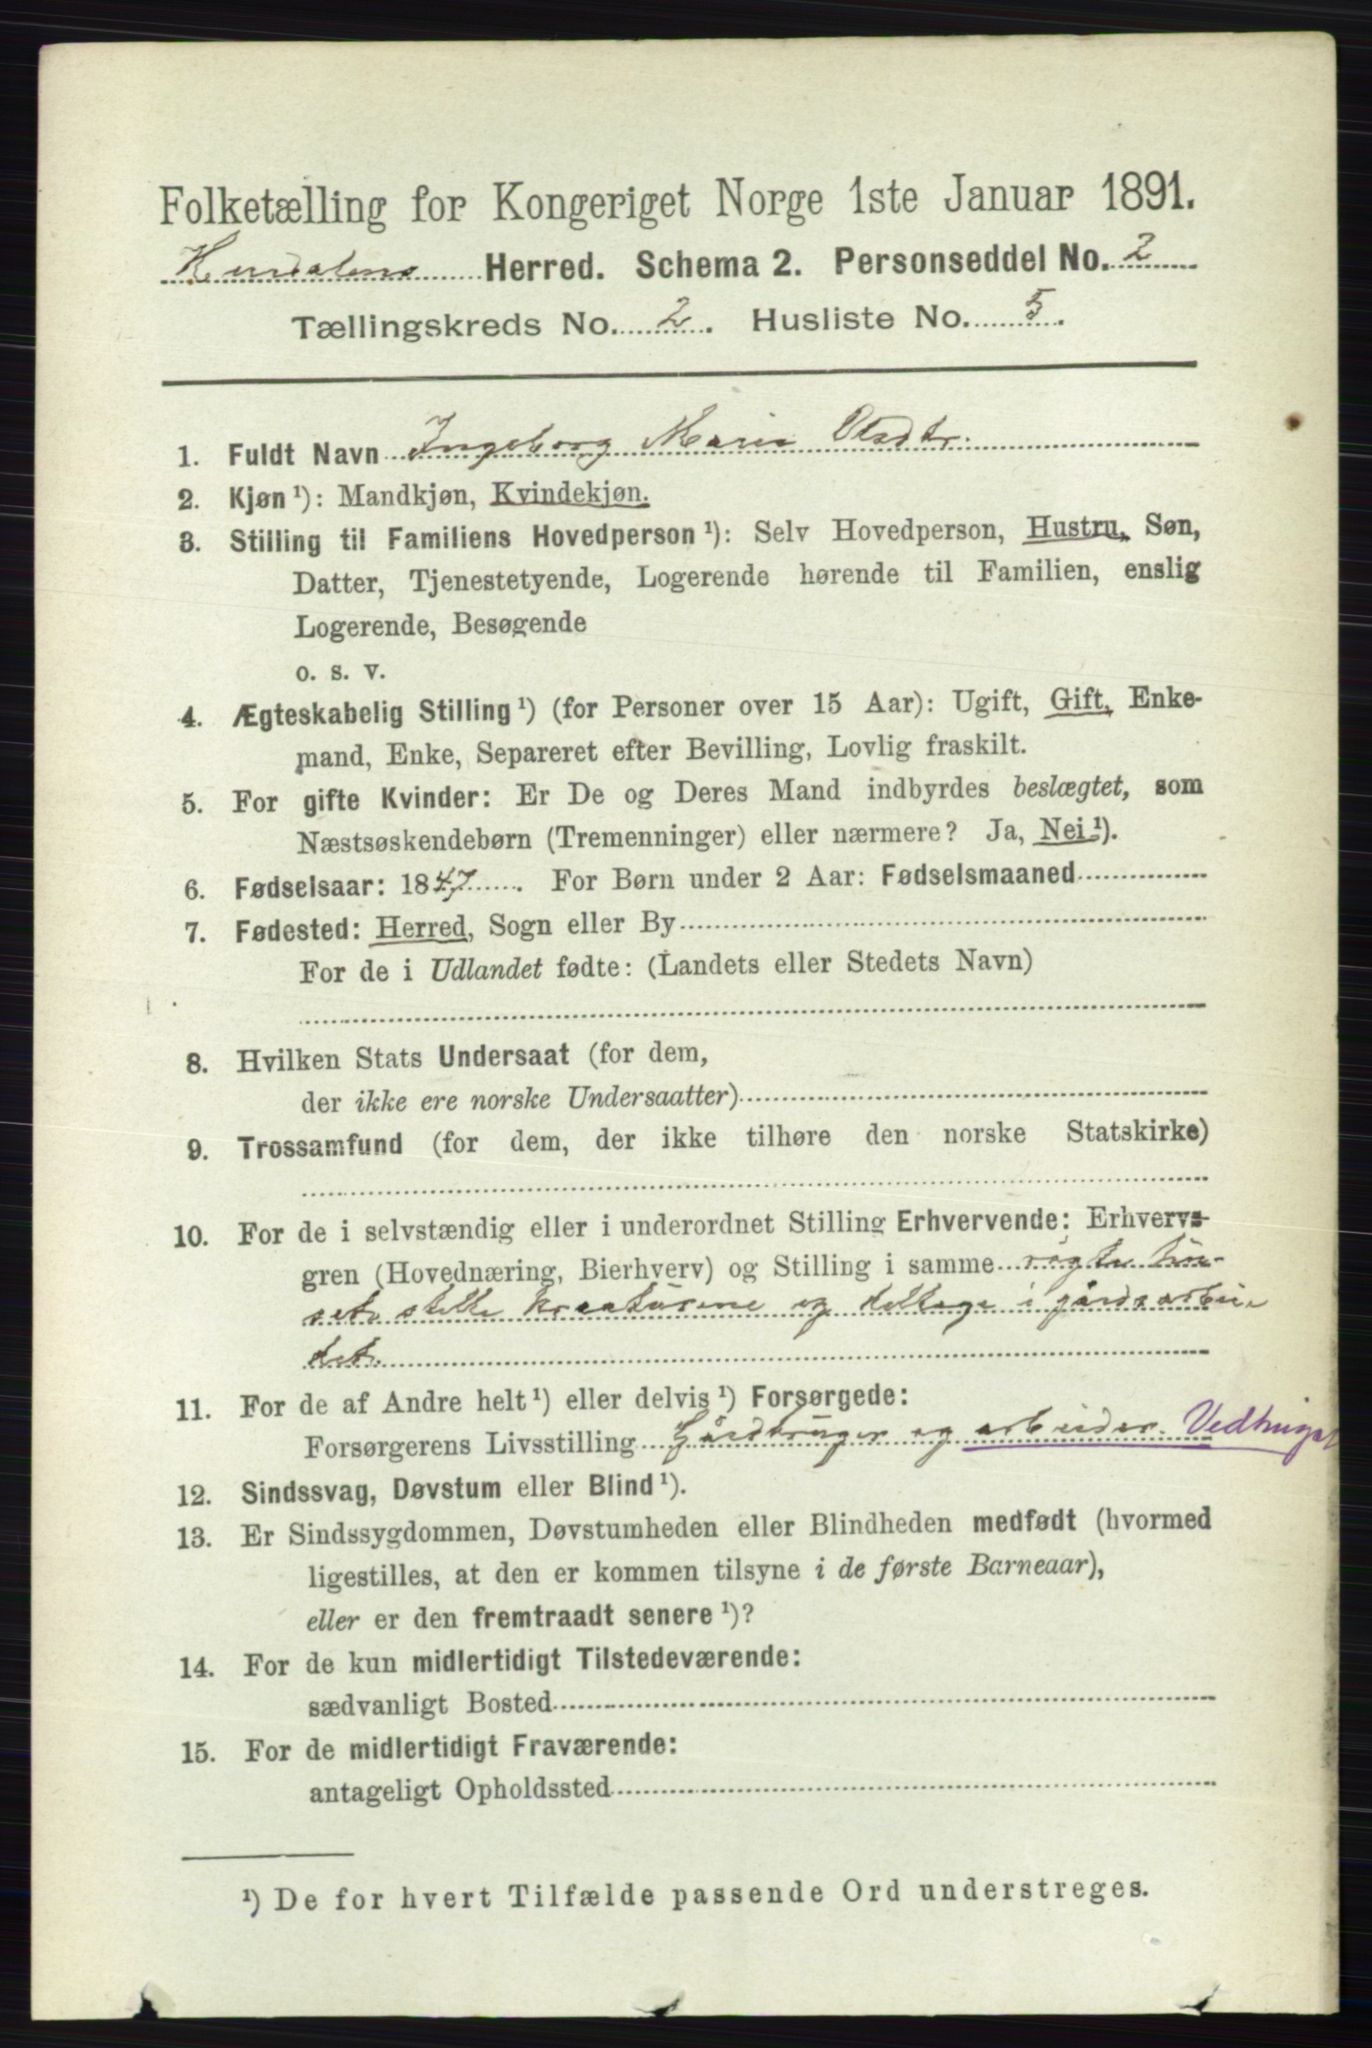 Folketælling for Kongeriget Norge 1ste Januar 1891.
Hurdalens Herred. Schema 2. Personseddel No. 2
Tællingskreds No. 2. Husliste No. 5.
1. Fuldt Navn Ingeborg Marie Olsdtr.
2. Kjøn ¹): Mandkjøn, Kvindekjøn.
3. Stilling til Familiens Hovedperson ¹): Selv Hovedperson, Hustru, Søn,
Datter, Tjenestetyende, Logerende hørende til Familien, enslig
Logerende, Besøgende
o. s. v.
4. Ægteskabelig Stilling ¹) (for Personer over 15 Aar): Ugift, Gift, Enke-
mand, Enke, Separeret efter Bevilling, Lovlig fraskilt.
5. For gifte Kvinder: Er De og Deres Mand indbyrdes beslægtet, som
Næstsøskendebørn (Tremenninger) eller nærmere? Ja, Nei ¹).
6. Fødselsaar: 1847. For Børn under 2 Aar: Fødselsmaaned
7. Fødested: Herred, Sogn eller By
For de i Udlandet fødte: (Landets eller Stedets Navn)
8. Hvilken Stats Undersaat (for dem,
der ikke ere norske Undersaatter)
9. Trossamfund (for dem, der ikke tilhøre den norske Statskirke)
10. For de i selvstændig eller i underordnet Stilling Erhvervende: Erhvervs-
gren (Hovednæring, Bierhverv) og Stilling i samme røgte hu-
set, stelle kreaturene og deltage i gårdsarbei-
det.
11. For de af Andre helt ¹) eller delvis ¹) Forsørgede:
Forsørgerens Livsstilling Gårdbruger og arbeider. Vedhugst
12. Sindssvag, Døvstum eller Blind ¹).
13. Er Sindssygdommen, Døvstumheden eller Blindheden medfødt (hvormed
ligestilles, at den er kommen tilsyne i de første Barneaar),
eller er den fremtraadt senere ¹)?
14. For de kun midlertidigt Tilstedeværende:
sædvanligt Bosted
15. For de midlertidigt Fraværende:
antageligt Opholdssted
¹) De for hvert Tilfælde passende Ord understreges.